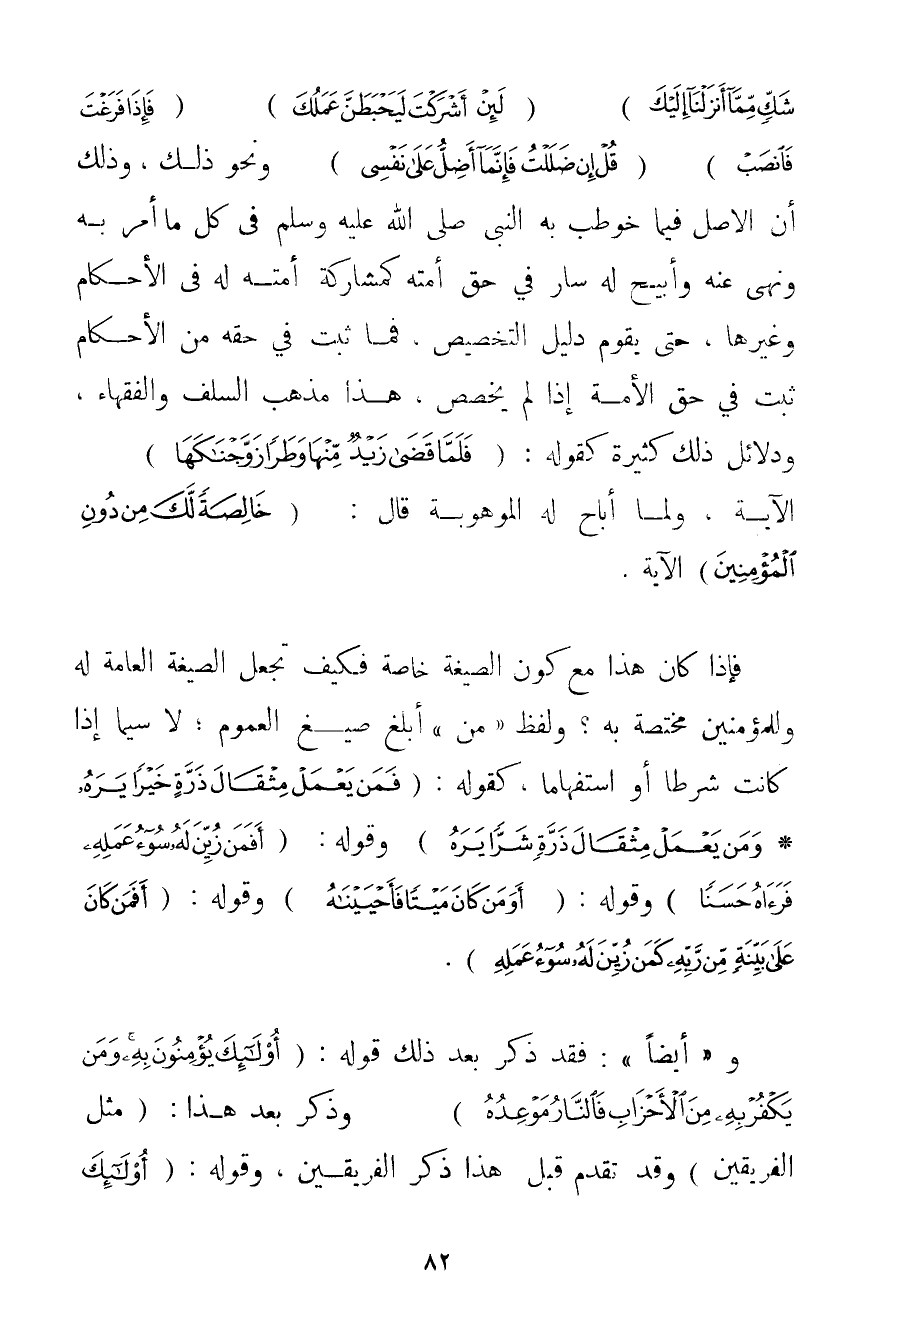 شَكٍّ مِّمَّآ أَنزَلْنَآ إِلَيْكَ ) ( لَئِنْ أَشْرَكْتَ لَيَحْبَطَنَّ عَمَلُكَ ) ( فَإِذَا فَرَغْتَ
فَٱنصَبْ ) ( قُلْ إِن ضَلَلْتُ فَإِنَّمَآ أَضِلُّ عَلَىٰ نَفْسِى ) ونحو ذلك ، وذلك
أن الاصل فيما خوطب به النبى صلى الله عليه وسلم فى كل ما أمر به
ونهى عنه وأبيح له سار في حق أمته كمشاركة أمته له فى الأحكام
وغيرها ، حتى يقوم دليل التخصيص ، فما ثبت في حقه من الأحكام
ثبت في حق الأمة إذا لم يخصص ، هذا مذهب السلف والفقهاء ،
ودلائل ذلك كثيرة كقوله : ( فَلَمَّا قَضَىٰ زَيْدٌ مِّنْهَا وَطَرًا زَوَّجْنَٰكَهَا )
الآية ، ولما أباح له الموهوبة قال : ( خَالِصَةً لَّكَ مِن دُونِ
ٱلْمُؤْمِنِينَ ) الآية .
فإذا كان هذا مع كون الصيغة خاصة فكيف تجعل الصيغة العامة له
وللمؤمنين مختصة به ؟ ولفظ « من » أبلغ صيغ العموم ؛ لا سيما إذا
كانت شرطا أو استفهاما ، كقوله : ( فَمَن يَعْمَلْ مِثْقَالَ ذَرَّةٍ خَيْرًا يَرَهُۥ
* وَمَن يَعْمَلْ مِثْقَالَ ذَرَّةٍ شَرًّا يَرَهُ ) وقوله : ( أَفَمَن زُيِّنَ لَهُۥ سُوٓءُ عَمَلِهِۦ
فَرَءَاهُ حَسَنًا ) وقوله : ( أَوَمَن كَانَ مَيْتًا فَأَحْيَيْنَٰهُ ) وقوله : ( أَفَمَن كَانَ
عَلَىٰ بَيِّنَةٍ مِّن رَّبِّهِۦ كَمَن زُيِّنَ لَهُۥ سُوٓءُ عَمَلِهِ ) .
و « أيضاً » : فقد ذكر بعد ذلك قوله : ( أُوْلَٰٓئِكَ يُؤْمِنُونَ بِهِۦۚ وَمَن
يَكْفُرْ بِهِۦ مِنَ ٱلْأَحْزَابِ فَٱلنَّارُ مَوْعِدُهُ ) وذكر بعد هذا : ( مثل
الفريقين ) وقد تقدم قبل هذا ذكر الفريقين ، وقوله : ( أُوْلَٰٓئِكَ
٨٢